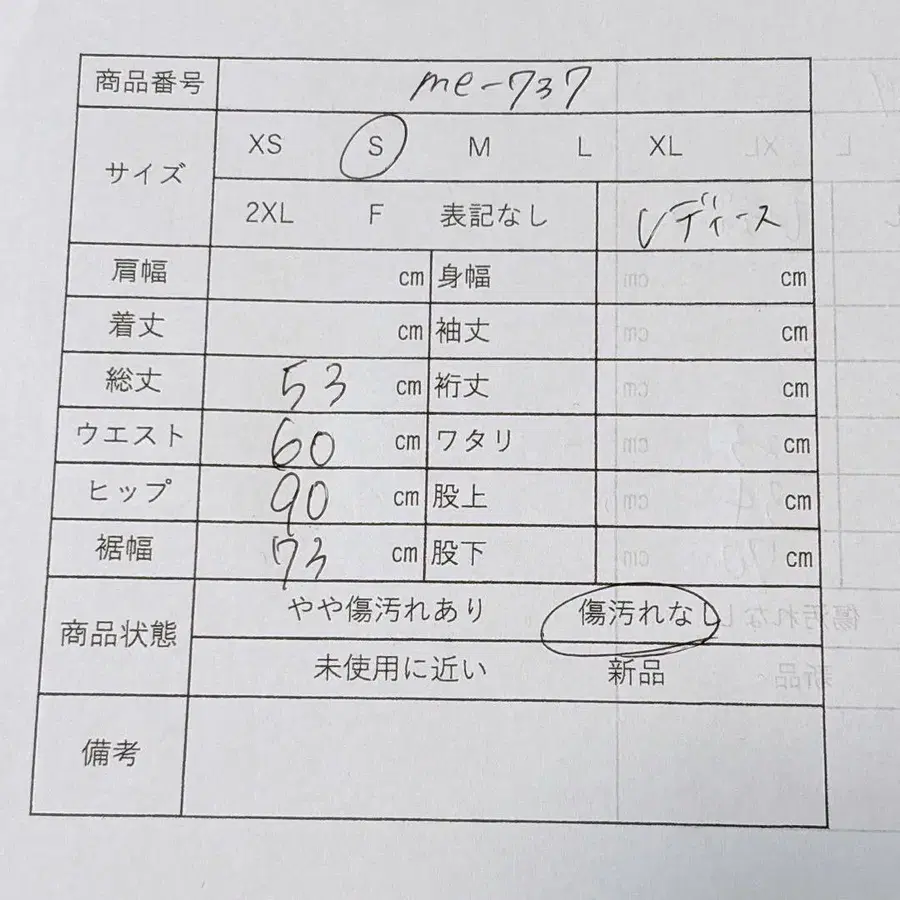 商品番号 me-737
サイズ XS S M L XL
2XL F 表記なし レディース
肩幅 cm 身幅 cm
着丈 cm 袖丈 cm
総丈 53 cm 裄丈 cm
ウエスト 60 cm ワタリ cm
ヒップ 90 cm 股上 cm
裾幅 73 cm 股下 cm
商品状態 やや傷汚れあり 傷汚れなし
未使用に近い 新品
備考